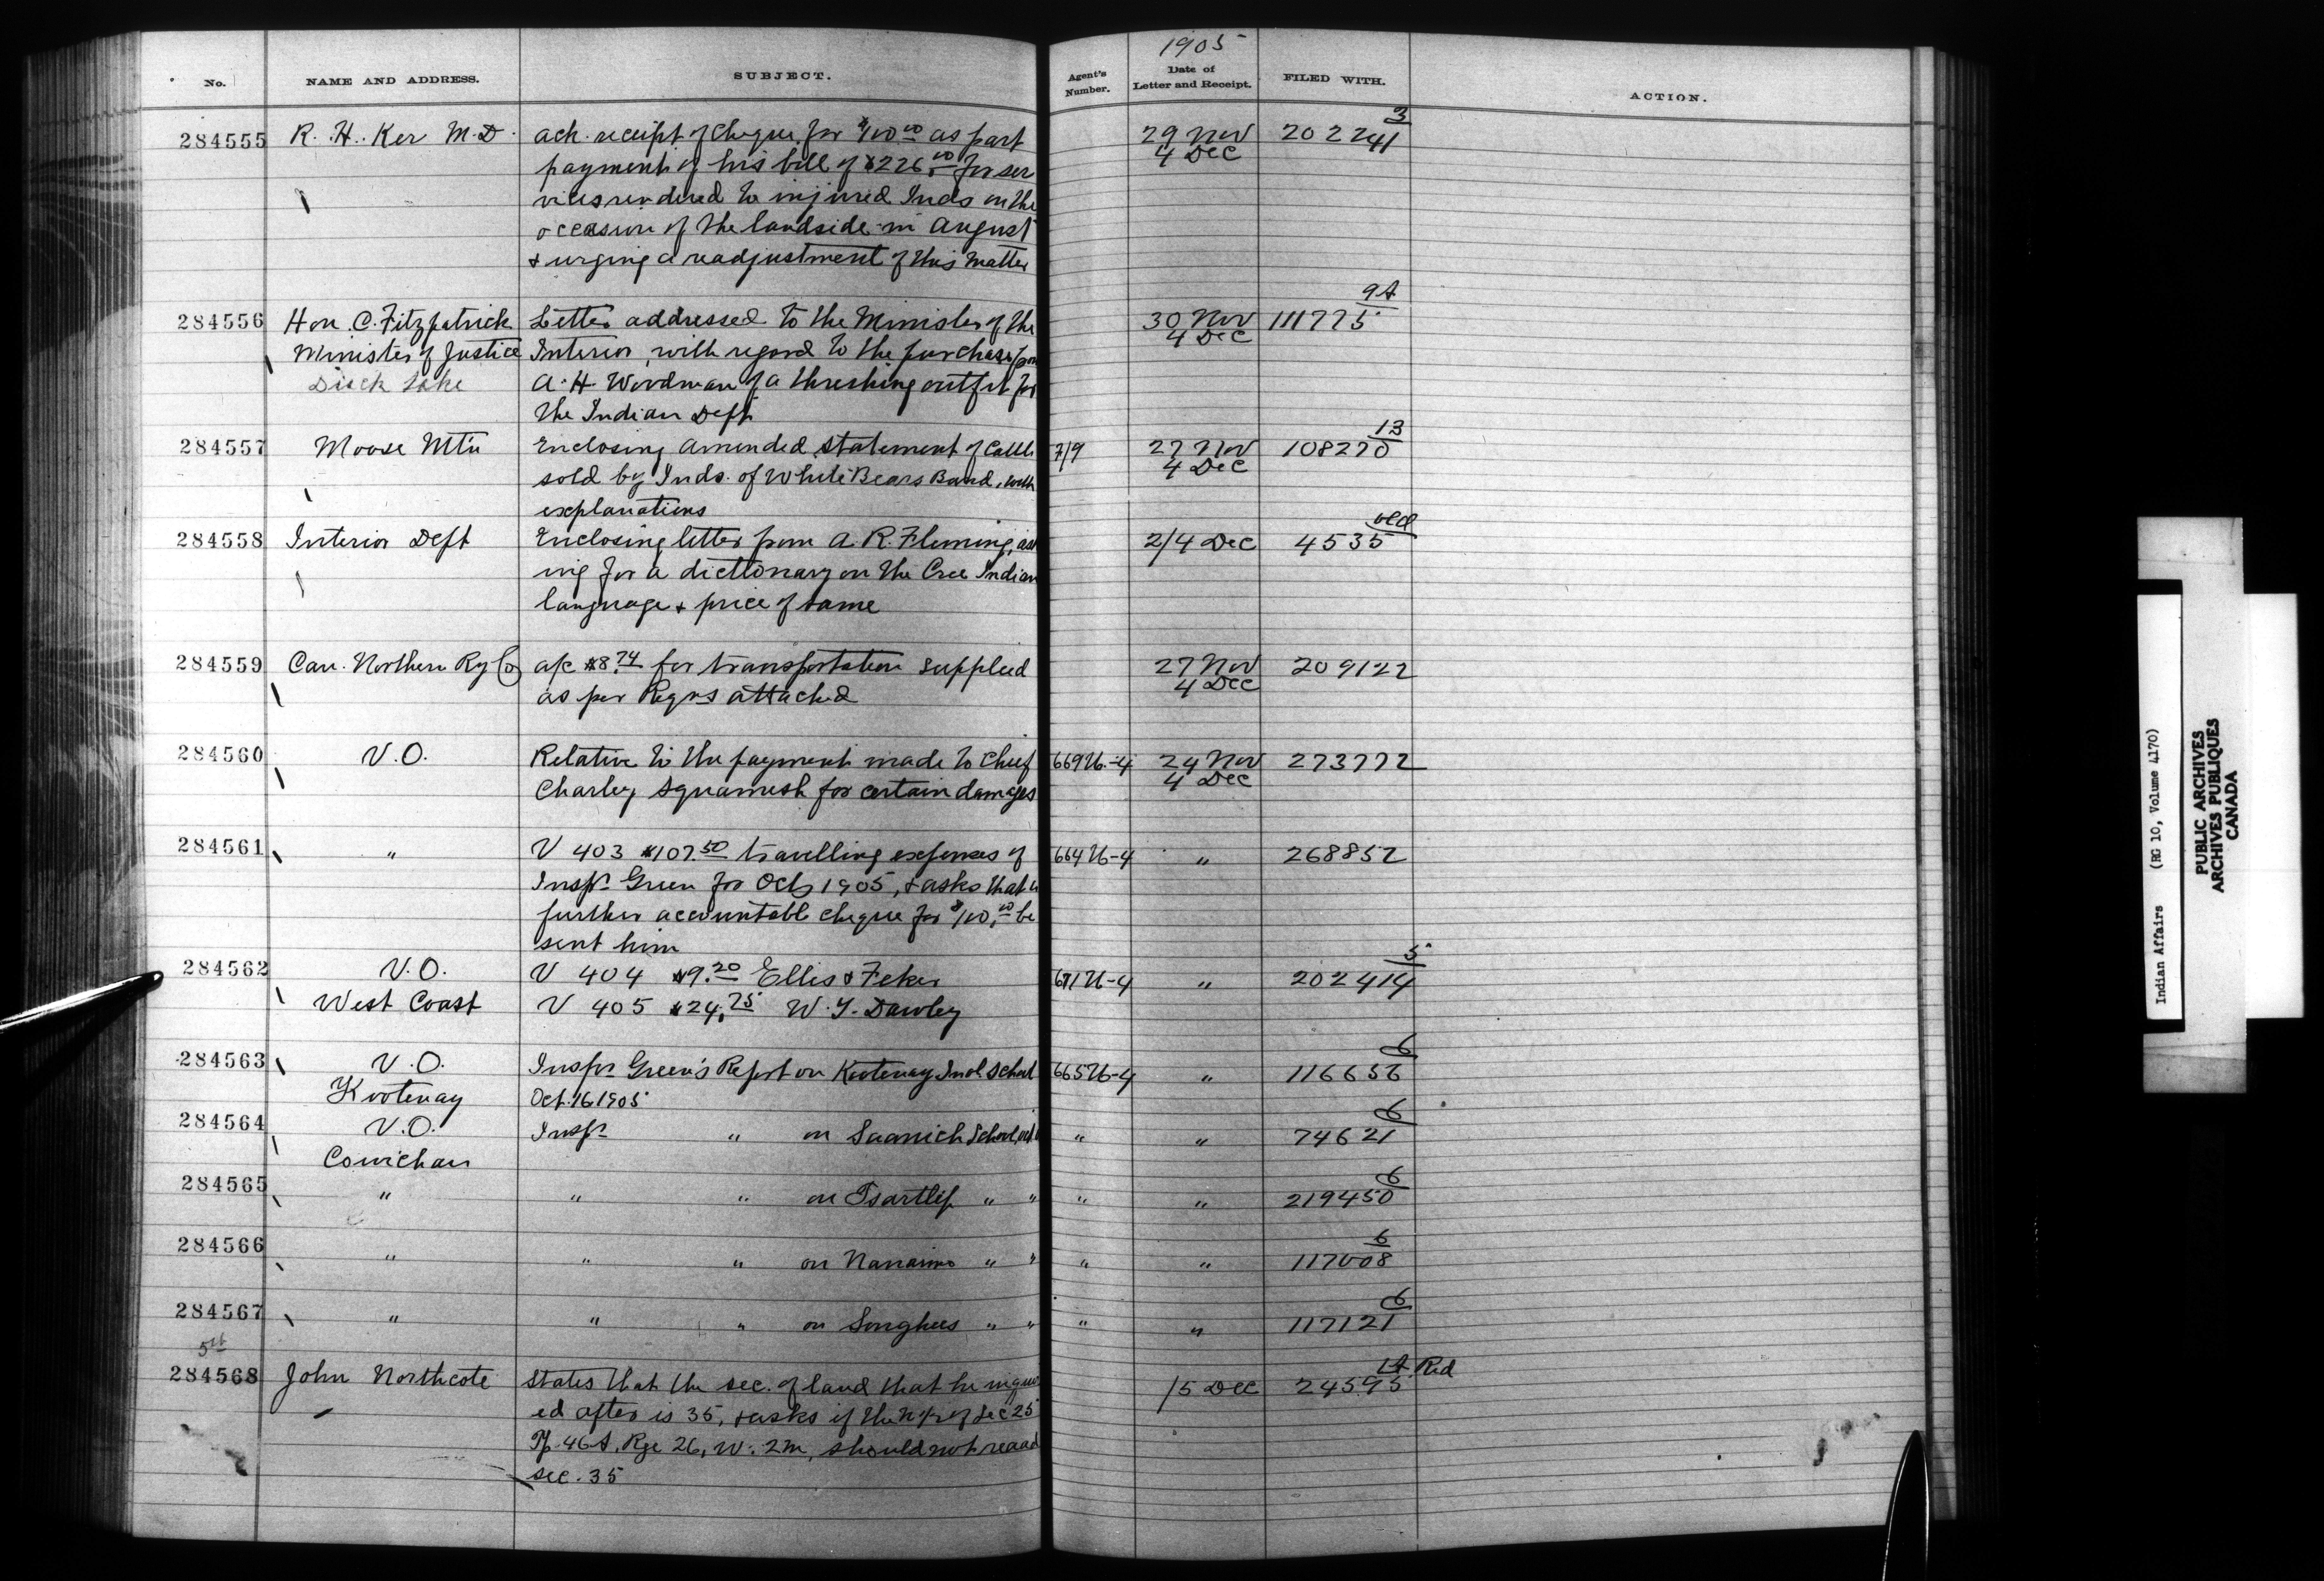 1905
No. NAME AND ADDRESS. SUBJECT. Agent's Number. Date of Letter and Receipt. FILED WITH. ACTION.
284555 R. H. Ker M.D. ack. receipt of cheque for $100.00 as part 29 Nov 202241 3
payment of his bill of $226.00 for ser 4 Dec
vices rendered to injured Inds on the
occasion of the landside in August
& urging a readjustment of this matter
284556 Hon. C. Fitzpatrick Letter addressed to the Minister of the 30 Nov 111775 9A
Minister of Justice Interior, with regard to the purchase from 4 Dec
Duck Lake A. H. Woodman of a threshing outfit for
the Indian Dept
284557 Moose Mt'n Enclosing amended statement of cattle 7/9 27 Nov 108270 13
sold by Inds. of White Bears Band, with 4 Dec
explanations
284558 Interior Dept Enclosing letter from A. R. Fleming, ask 2/4 Dec 4535 old
ing for a dictionary on the Cree Indian
language & price of same
284559 Can. Northern Ry Co a/c $8.74 for transportation supplied 27 Nov 209122
as per Reqns attached 4 Dec
284560 V.O. Relative to the payment made to Chief 669 26-4 24 Nov 273772
Charley Squamish for certain damages 4 Dec
284561 " V 403 $107.50 travelling expenses of 664 26-4 " 268852
Inspr Green for Oct, 1905, & asks that a
further accountable cheque for $100.00 be
sent him
284562 V.O. V 404 $9.20 Ellis & Feker 671 26-4 " 202414 5
West Coast V 405 $24.75 W. T. Dawley
284563 V.O. Inspr Green's Report on Kootenay Indl School 665 26-4 " 116656 6
Kootenay Oct. 16 1905
284564 V.O. Inspr " on Saanich School, " " 74621 6
Cowichan
284565 " " " on Tsartlip " " " " 219450 6
284566 " " " on Nanaimo " " " " 117008 6
284567 " " " on Songhees " " " " 117121 6
5th
284568 John Northcote States that the sec. of land that he inquir 1/5 Dec 24595 1A Red
ed after is 35, & asks if the of Sec 25
Tp. 46A, Rge 26, W. 2m, should not read
sec. 35
Indian Affairs (RG 10, Volume 4170)
PUBLIC ARCHIVES
ARCHIVES PUBLIQUES
CANADA